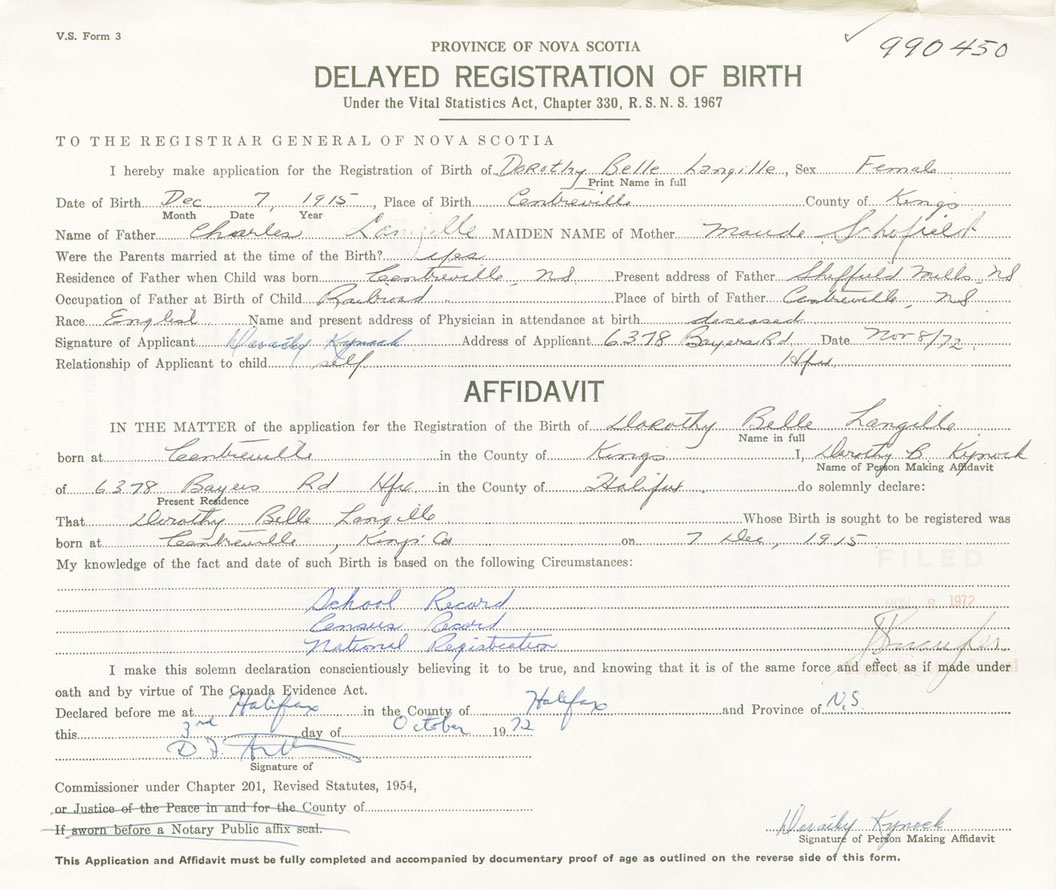 V.S. Form 3
990450
PROVINCE OF NOVA SCOTIA
DELAYED REGISTRATION OF BIRTH
Under the Vital Statistics Act, Chapter 330, R. S. N. S. 1967
TO THE REGISTRAR GENERAL OF NOVA SCOTIA
I hereby make application for the Registration of Birth of Dorothy Belle Langille, Sex Female
Print Name in full
Date of Birth Dec 7, 1915, Place of Birth Centreville County of Kings
Month Date Year
Name of Father Charles Langille MAIDEN NAME of Mother Maude Schofield
Were the Parents married at the time of the Birth? yes
Residence of Father when Child was born Centreville, NS Present address of Father Sheffield Mills, NS
Occupation of Father at Birth of Child Railroad Place of birth of Father Centreville, NS
Race English Name and present address of Physician in attendance at birth deceased
Signature of Applicant Dorothy Kynock Address of Applicant 6378 Bayers Rd Date Nov 8/72
Relationship of Applicant to child self Hfx
AFFIDAVIT
IN THE MATTER of the application for the Registration of the Birth of Dorothy Belle Langille
Name in full
born at Centreville in the County of Kings I, Dorothy B Kynock
Name of Person Making Affidavit
of 6378 Bayers Rd Hfx in the County of Halifax do solemnly declare:
Present Residence
That Dorothy Belle Langille Whose Birth is sought to be registered was
born at Centreville, Kings Co on 7 Dec, 1915
FILED
My knowledge of the fact and date of such Birth is based on the following Circumstances:
School Record
NOV 8 1972
Census Record
National Registration
I make this solemn declaration conscientiously believing it to be true, and knowing that it is of the same force and effect as if made under
oath and by virtue of The Canada Evidence Act.
Declared before me at Halifax in the County of Halifax and Province of N.S
this 3rd day of October 1972
Signature of
Commissioner under Chapter 201, Revised Statutes, 1954,
or Justice of the Peace in and for the County of
If sworn before a Notary Public affix seal.
Dorothy Kynock
Signature of Person Making Affidavit
This Application and Affidavit must be fully completed and accompanied by documentary proof of age as outlined on the reverse side of this form.